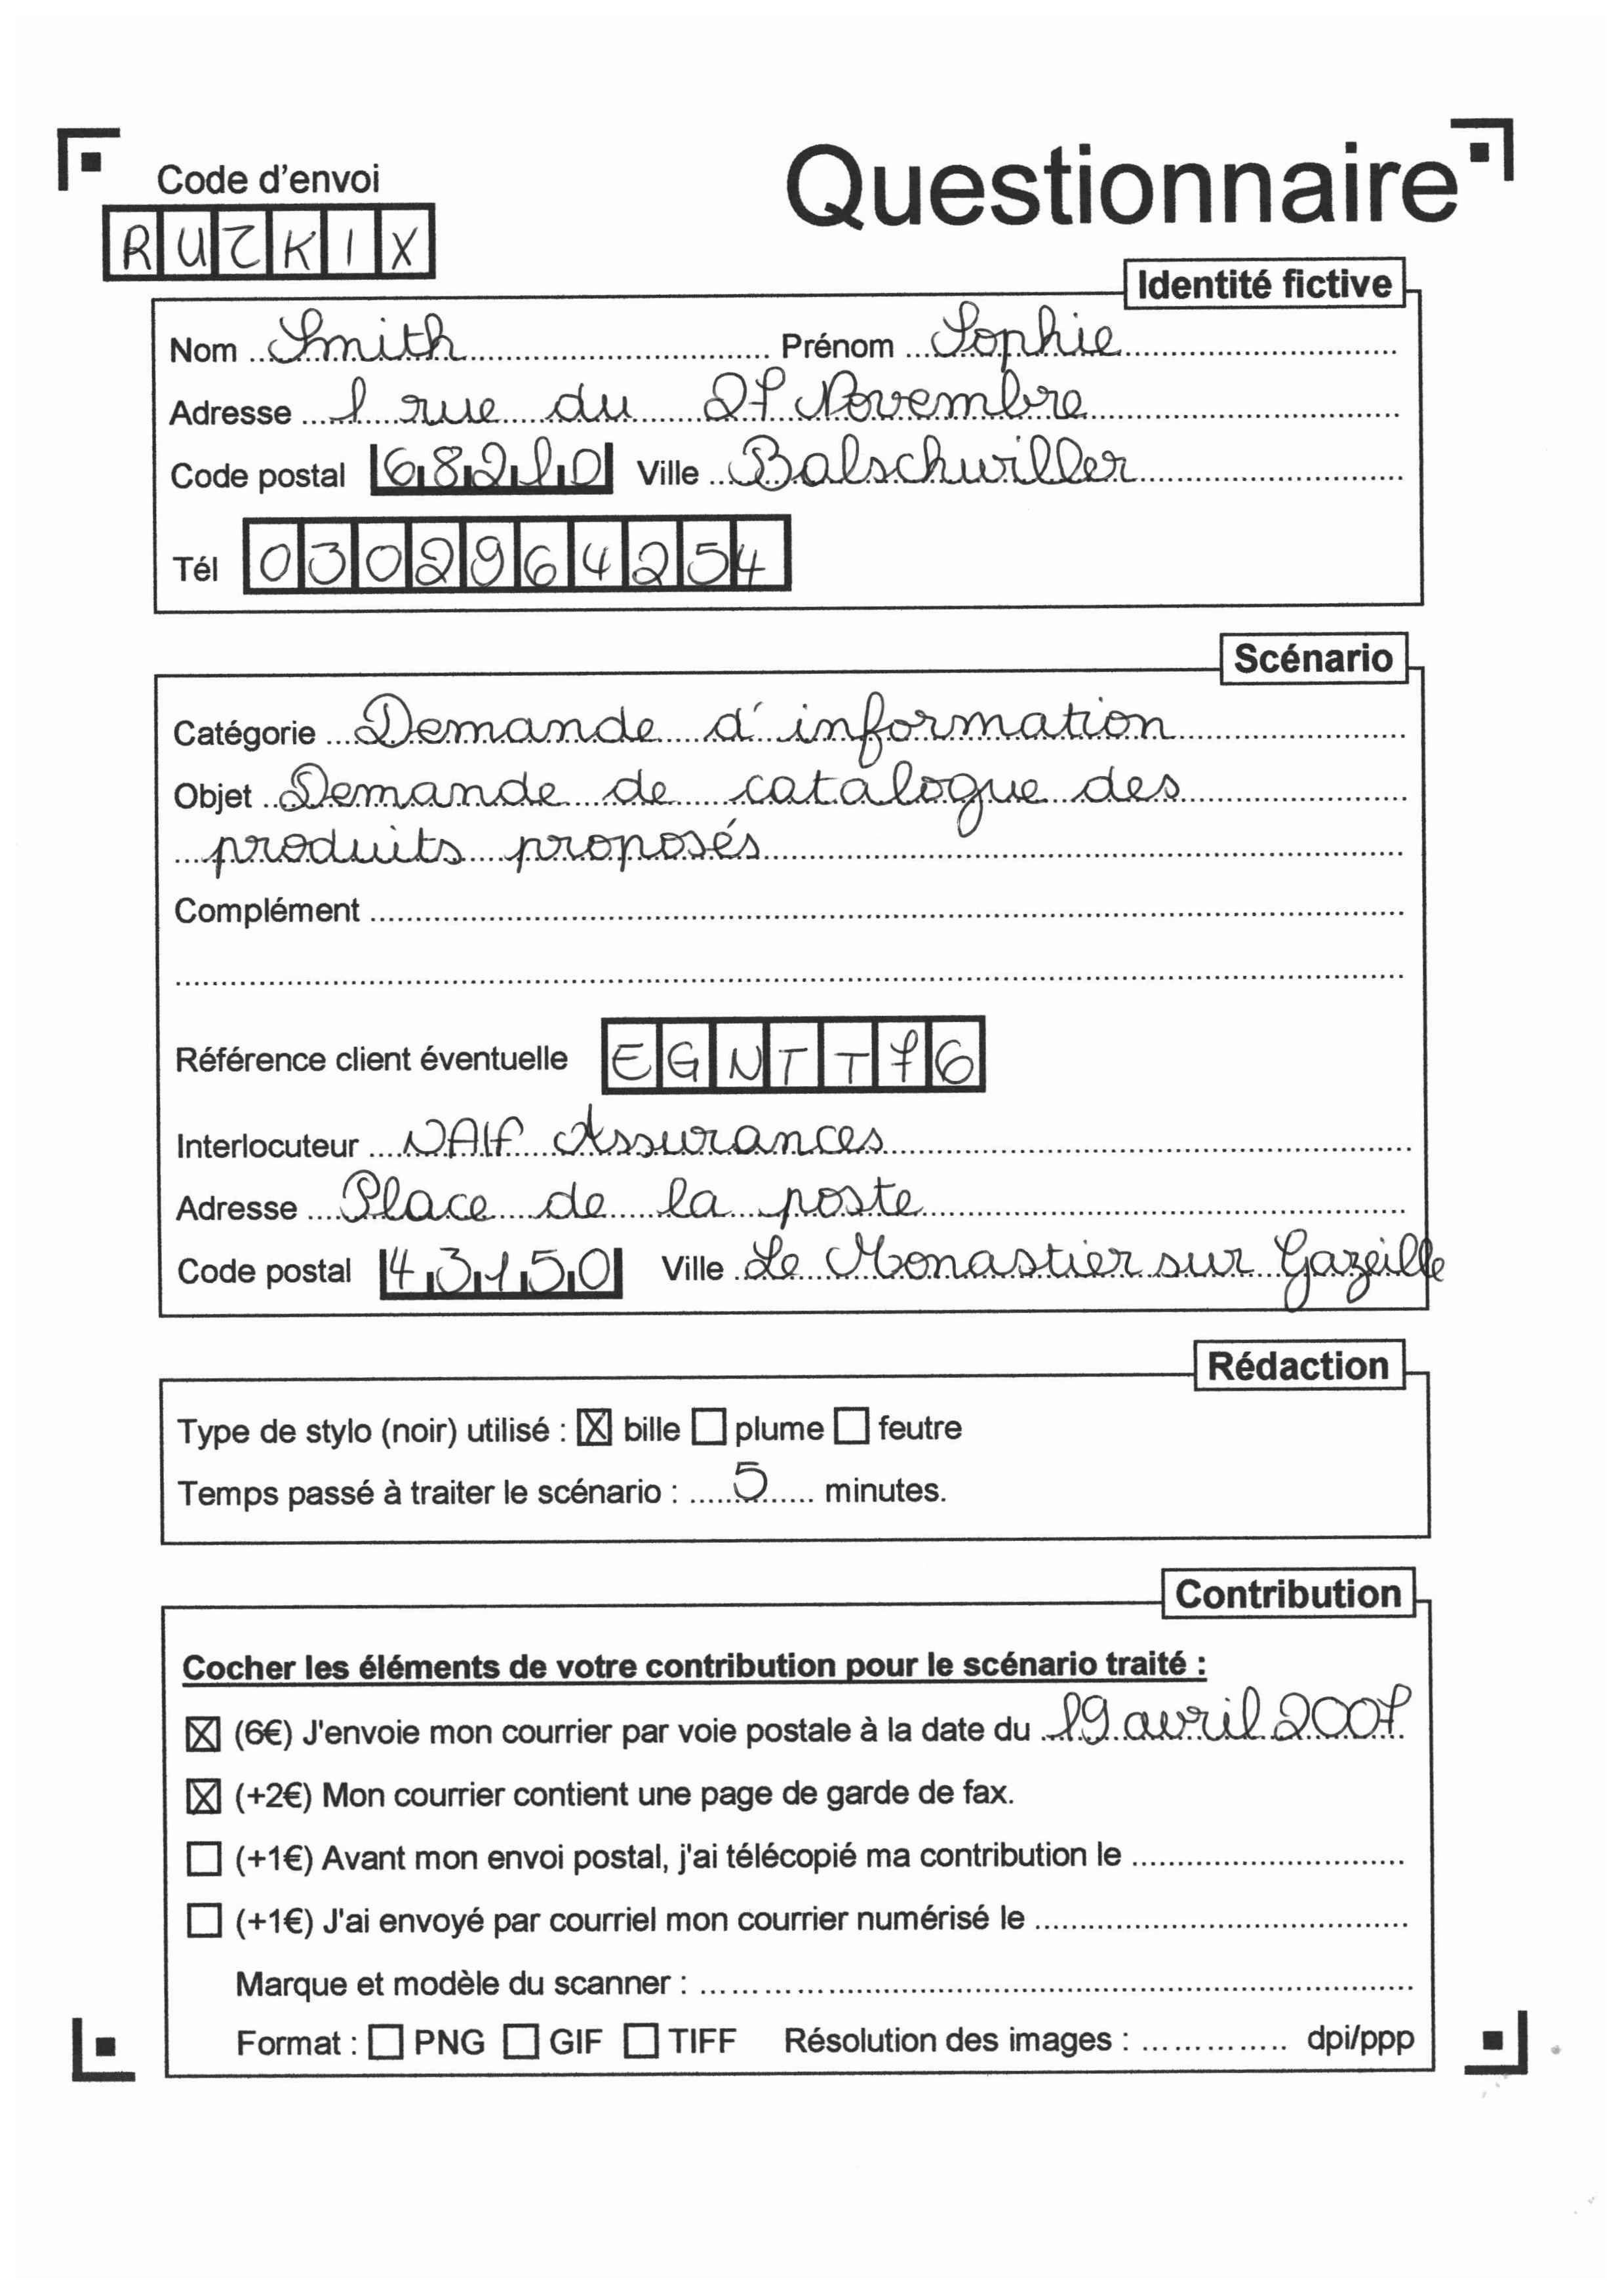 Code d'envoi
Questionnaire
RUZKIX
Identité fictive
Nom Smith Prénom Sophie
Adresse 1 rue du 27 Novembre
Code postal 68210 Ville Balschwiller
Tél 0302964254
Scénario
Catégorie Demande d'information
Objet Demande de catalogue des
produits proposés
Complément
Référence client éventuelle EGNTT76
Interlocuteur NAIF Assurances
Adresse Place de la poste
Code postal 43150 Ville Le Monastier sur Gazeille
Rédaction
Type de stylo (noir) utilisé : ☒ bille ☐ plume ☐ feutre
Temps passé à traiter le scénario : 5 minutes.
Contribution
Cocher les éléments de votre contribution pour le scénario traité :
☒ (6€) J'envoie mon courrier par voie postale à la date du 19 avril 2007
☒ (+2€) Mon courrier contient une page de garde de fax.
☐ (+1€) Avant mon envoi postal, j'ai télécopié ma contribution le
☐ (+1€) J'ai envoyé par courriel mon courrier numérisé le
Marque et modèle du scanner :
Format : ☐ PNG ☐ GIF ☐ TIFF Résolution des images : dpi/ppp